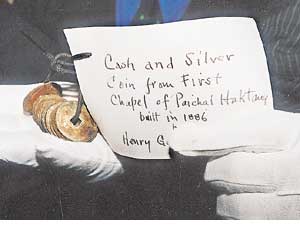 Cash and Silver
Coin from First
Chapel of Paichai Haktang
built in 1886
Henry G.